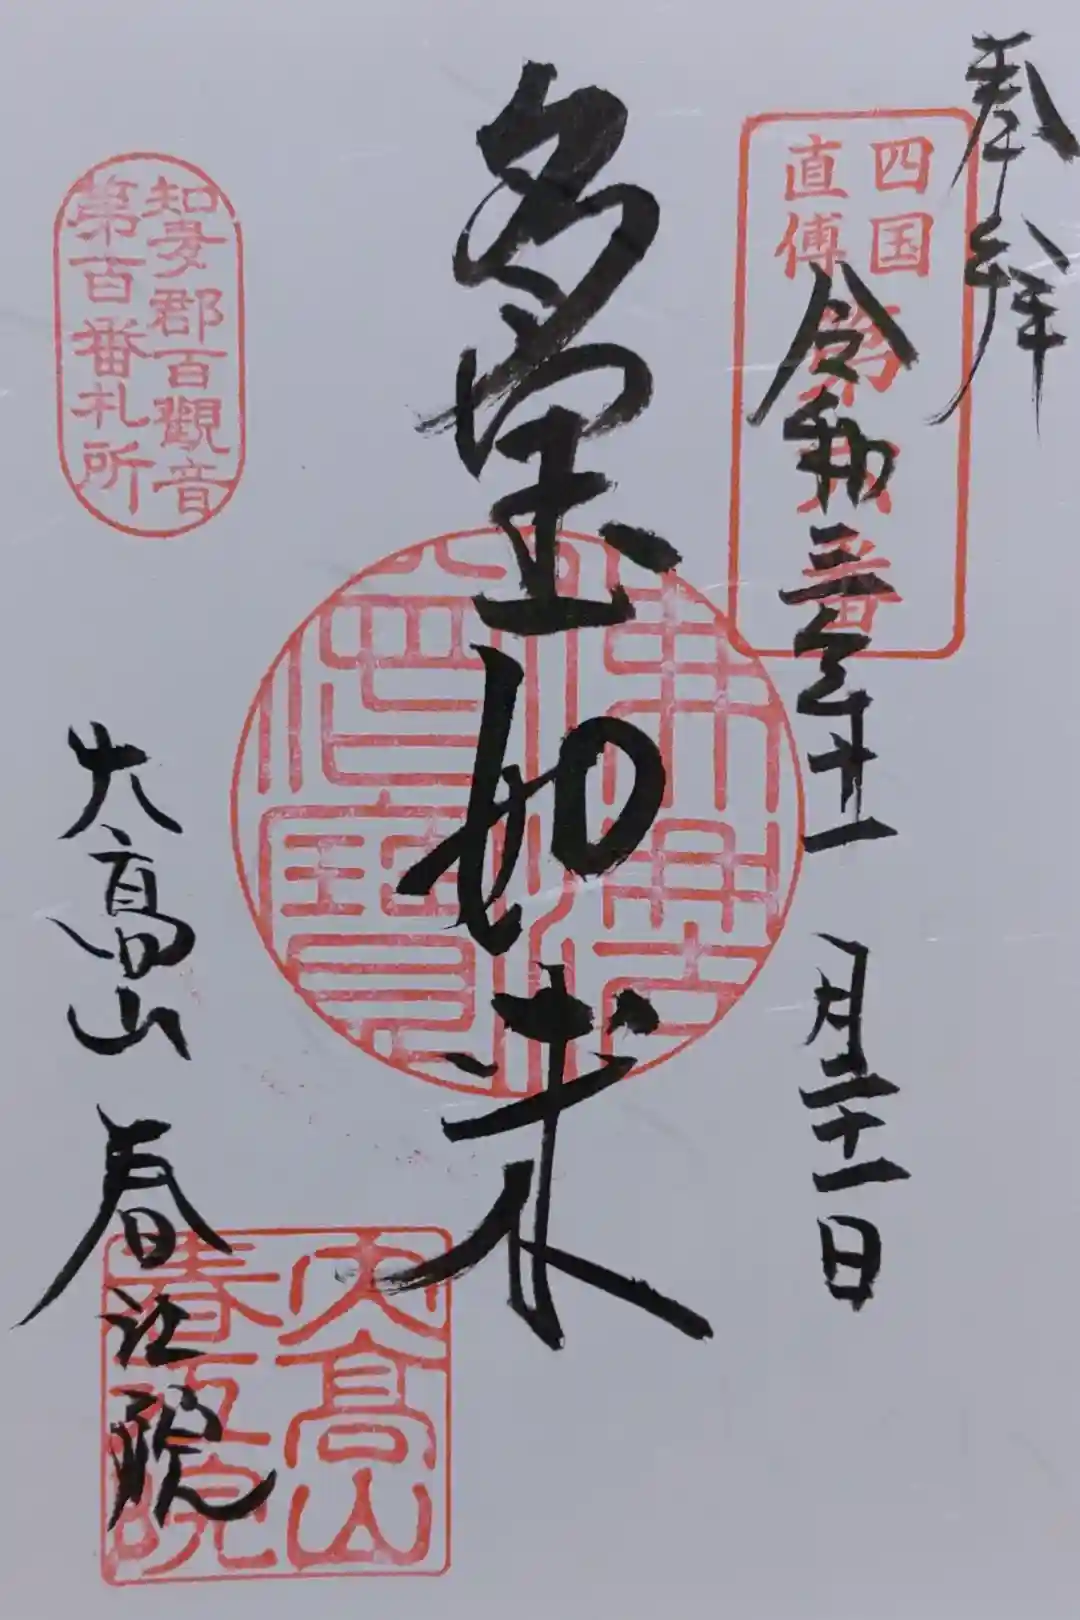 奉拝
四国
直傳
第
番
令和三年十一月二十一日
多宝如来
佛法
僧寶
知夛郡百觀音
第百番札所
大高山 春江院
大高山
春江院